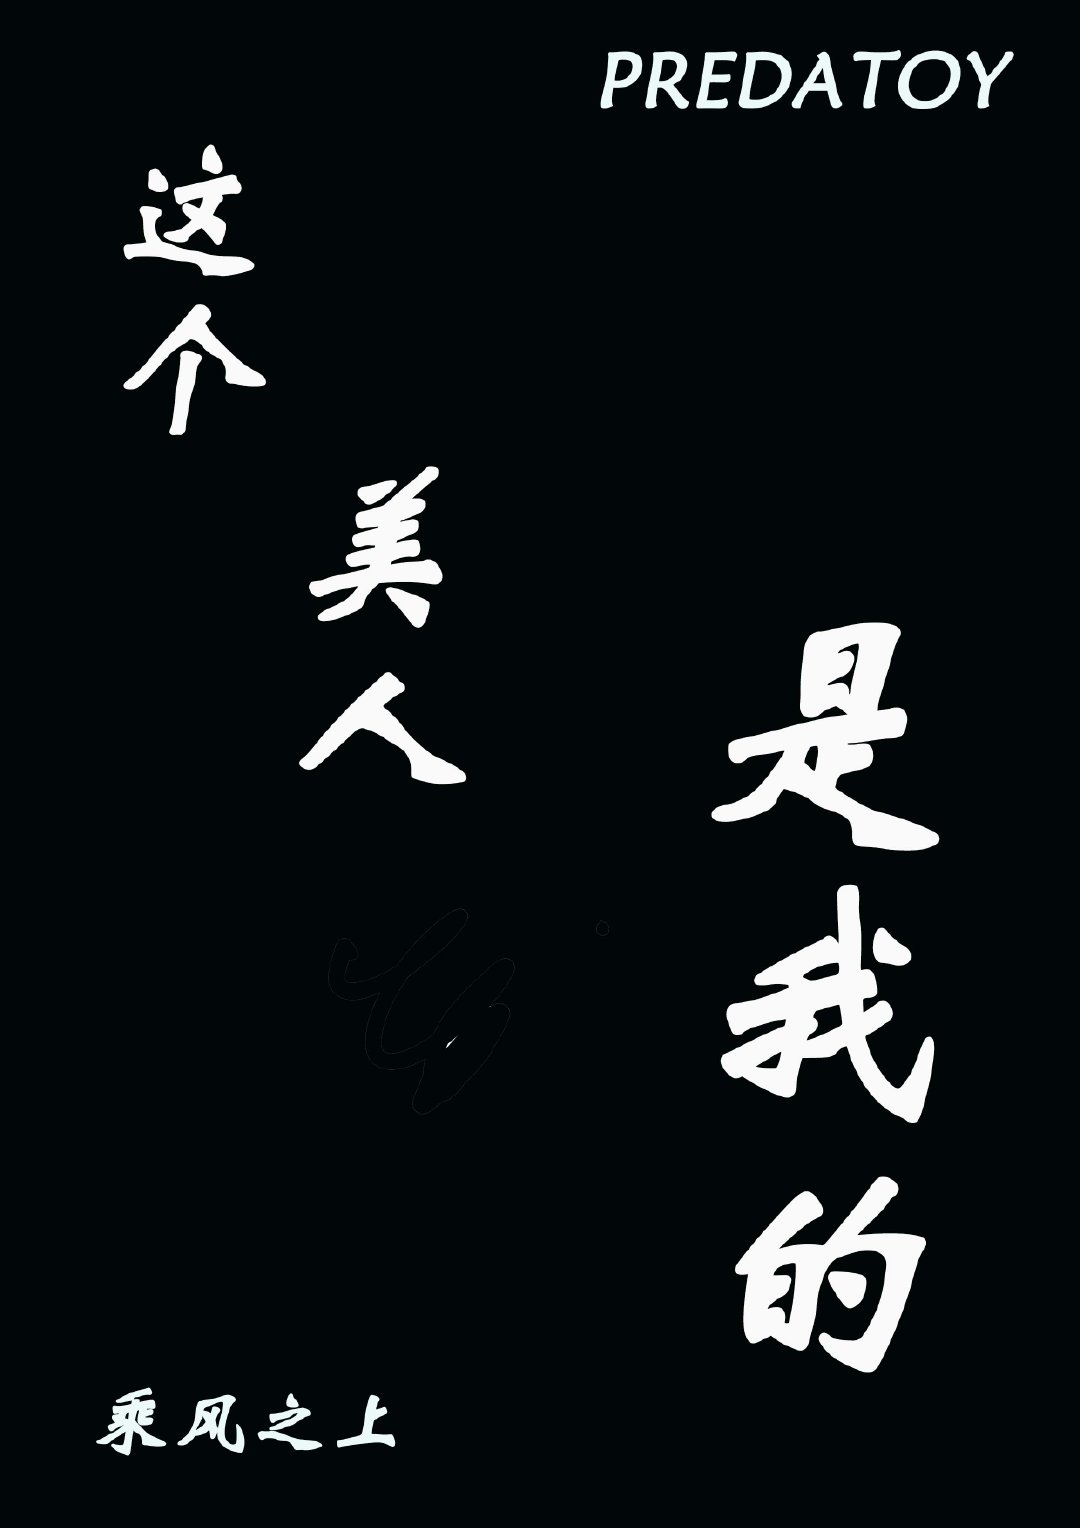 PREDATOY
这个
美人
是我的
乘风之上